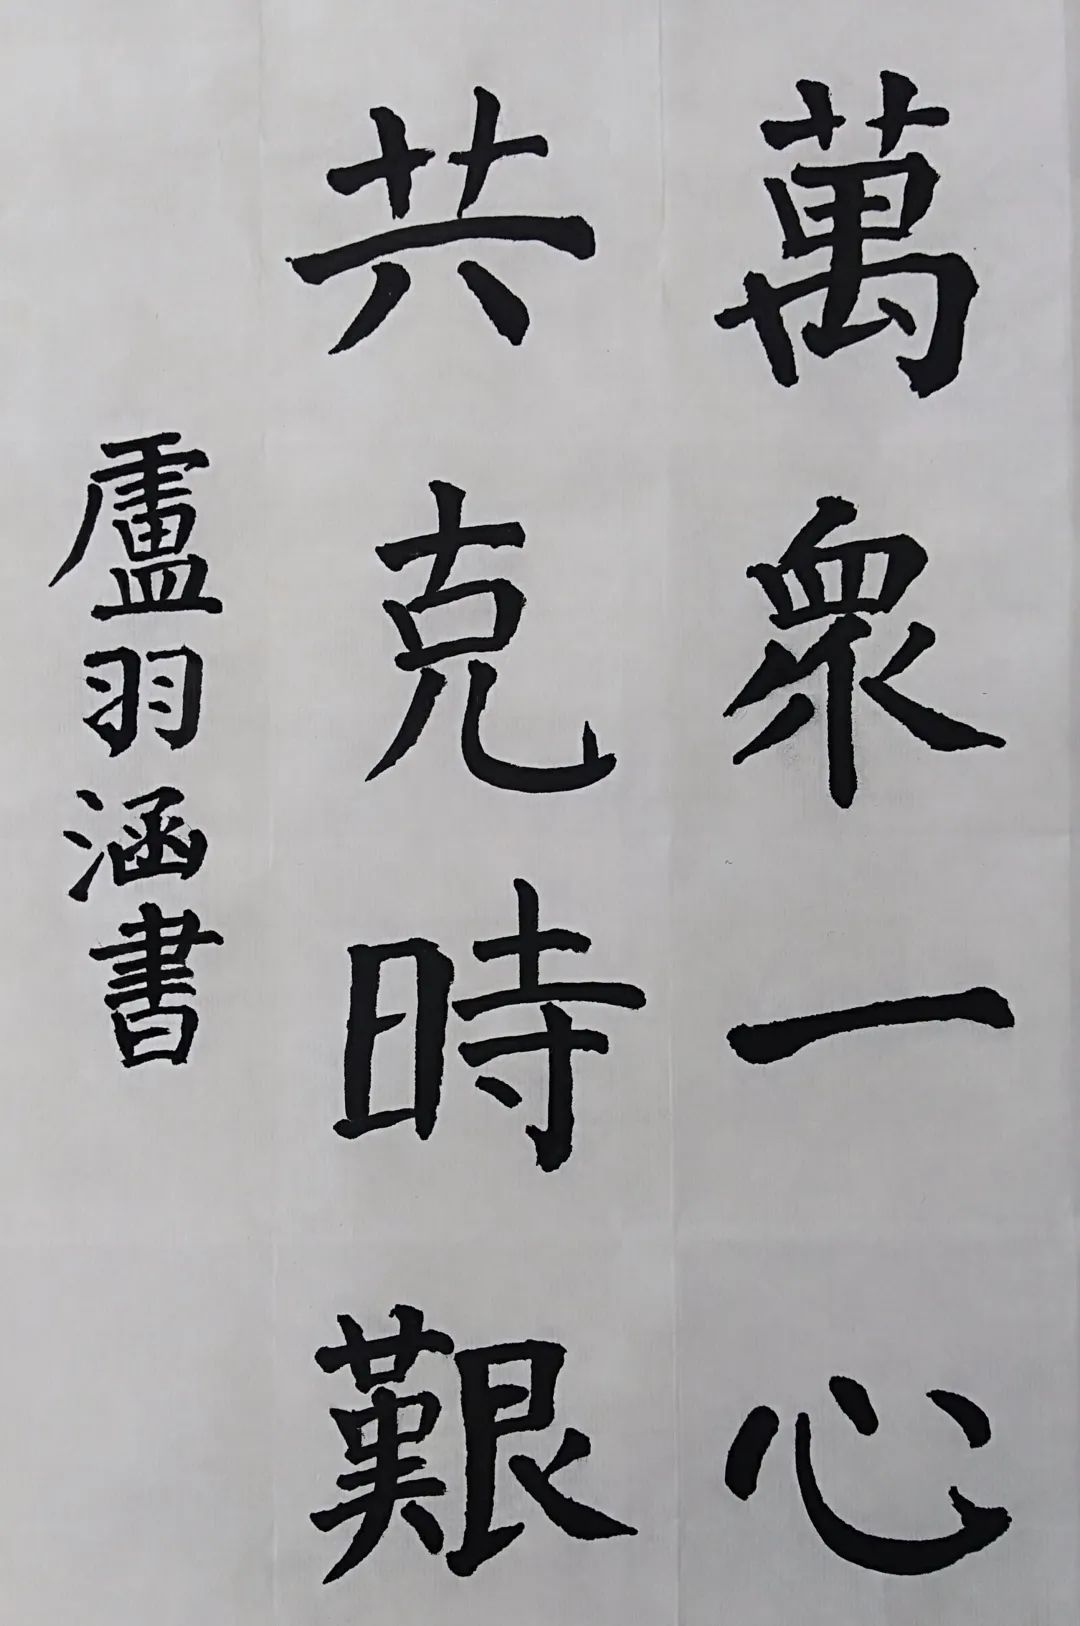 萬眾一心
共克時艱
盧羽涵書